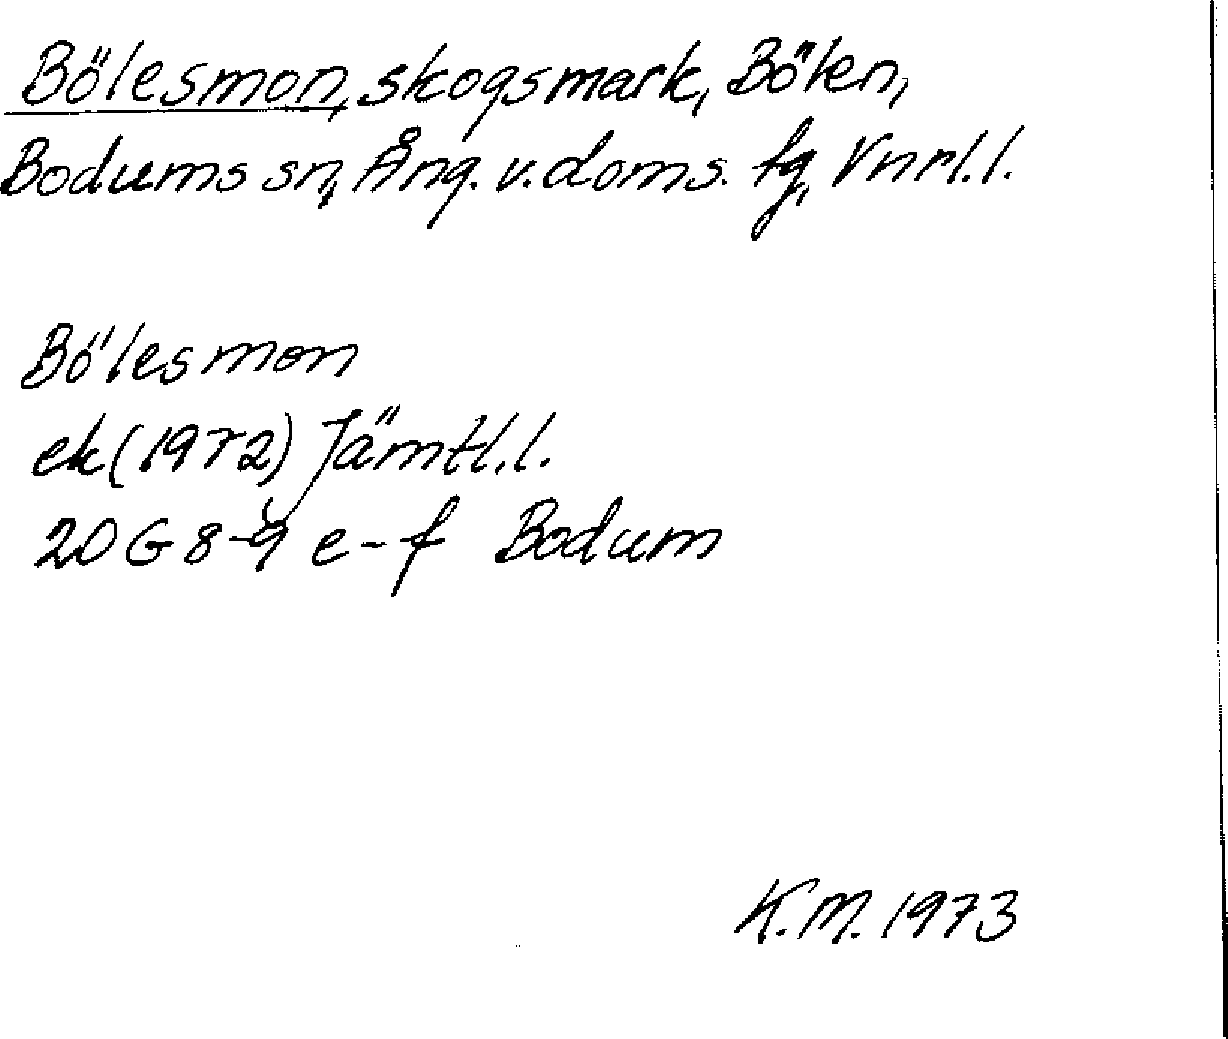 Bölesmon, skogsmark, Bölen,
Bodums sn, Ång. v. doms. fg, Vnrl. l.
Bölesmon
ek (1972) Jämtl. l.
20G 8-9 e-f Bodum
K.M. 1973